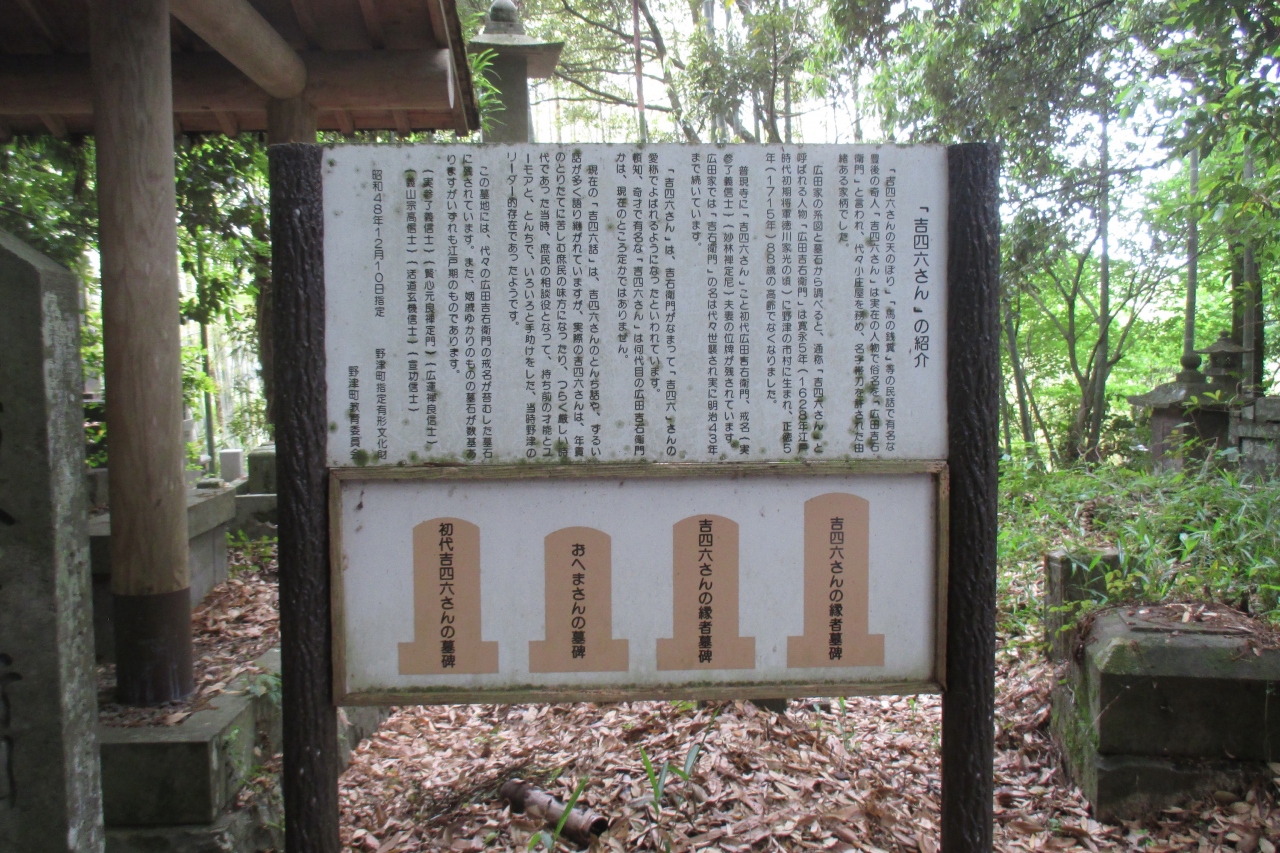 「吉四六さん」の紹介
「吉四六さんの天のぼり」「馬の銭糞」等の民話で有名な
豊後の奇人「吉四六さん」は実在の人物で俗名を「広田吉右
衛門」と言われ、代々小庄屋を務め、名字帯刀を許された由
緒ある家柄でした。
広田家の系図と墓石から調べると、通称「吉四六さん」と
呼ばれる人物「広田吉右衛門」は寛永5年（1628年江戸
時代初期将軍徳川家光の頃）に野津の市村に生まれ、正徳5
年（1715年）88歳の高齢でなくなりました。
普現寺に「吉四六さん」こと初代広田吉右衛門、戒名（実
参了義信士）（妙林禅定尼）夫妻の位牌が残されています。
広田家では「吉右衛門」の名は代々世襲され実に明治43年
まで続いています。
「吉四六さん」は、吉右衛門がなまって、「吉四六」さんの
愛称でよばれるようになったといわれています。
頓知、奇才で有名な「吉四六さん」は何代目の広田吉右衛門
かは、現在のところ定かではありません。
現在の「吉四六話」は、吉四六さんのとんち話や、ずるい
話が多く語り継がれていますが、実際の吉四六さんは、年貢
のとりたてに苦しむ庶民の味方になったり、つらく厳しい時
代であった当時、庶民の相談役となって、持ち前の才能とユ
ーモアと、とんちで、いろいろと手助けをした、当時野津の
リーダー的存在であったようです。
この墓地には、代々の広田吉右衛門の戒名が苔むした墓石
に残されています。また、姻戚ゆかりのもの墓石が数基あ
りますがいずれも江戸期のものであります。
（実参了義信士）（賢心元良禅定門）（広運禅良信士）
（義山宗高信士）（活道玄機信士）（宣功信士）
昭和48年12月10日指定　野津町指定有形文化財
野津町教育委員会
吉四六さんの縁者墓碑
吉四六さんの縁者墓碑
おへまさんの墓碑
初代吉四六さんの墓碑